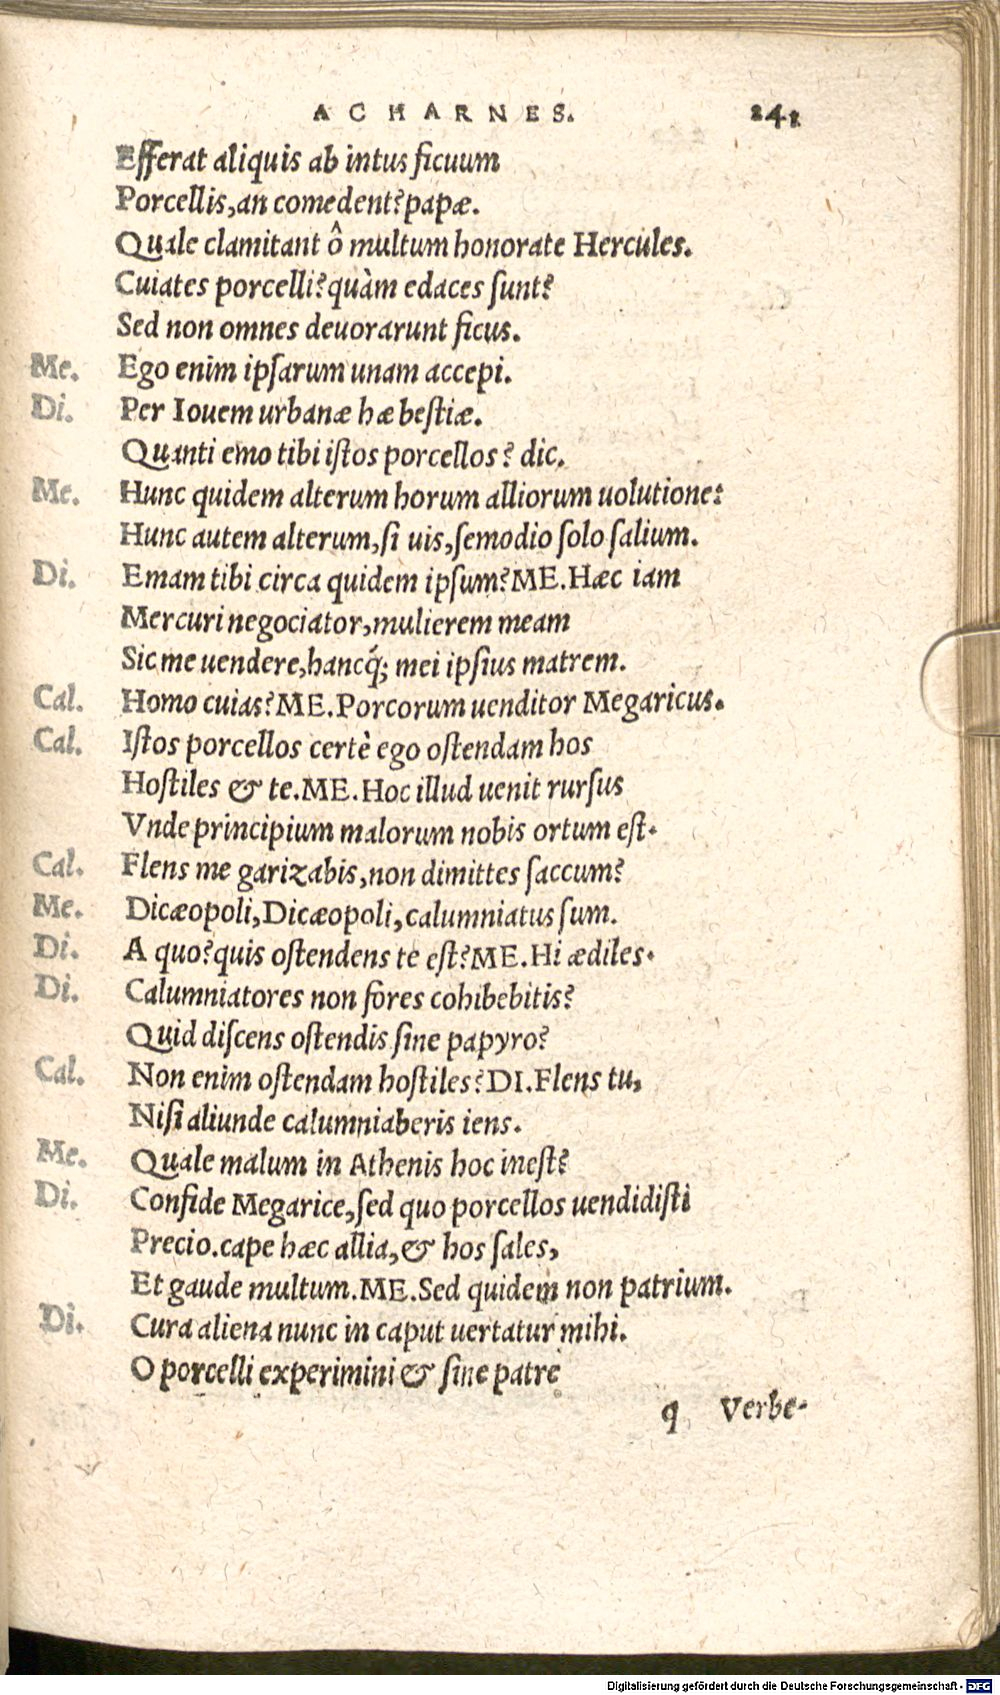 ACHARNES. 241
Efferat aliquis ab intus ficuum
Porcellis, an comedent? papæ.
Quale clamitant ô multum honorate Hercules.
Cuiates porcelli? quàm edaces ſunt?
Sed non omnes deuorarunt ficus.
Me. Ego enim ipſarum unam accepi.
Di. Per Iouem urbanæ hæ beſtiæ.
Quanti emo tibi iſtos porcellos? dic.
Me. Hunc quidem alterum horum alliorum uolutione:
Hunc autem alterum, ſi uis, ſemodio ſolo ſalium.
Di. Emam tibi circa quidem ipſum? ME. Hæc iam
Mercuri negociator, mulierem meam
Sic me uendere, hancq́; mei ipſius matrem.
Cal. Homo cuias? ME. Porcorum uenditor Megaricus.
Cal. Iſtos porcellos certè ego oſtendam hos
Hoſtiles & te. ME. Hoc illud uenit rurſus
Vnde principium malorum nobis ortum eſt.
Cal. Flens me garizabis, non dimittes ſaccum?
Me. Dicæopoli, Dicæopoli, calumniatus ſum.
Di. A quo? quis oſtendens te eſt? ME. Hi ædiles.
Di. Calumniatores non fores cohibebitis?
Quid diſcens oſtendis ſine papyro?
Cal. Non enim oſtendam hoſtiles? DI. Flens tu,
Niſi aliunde calumniaberis iens.
Me. Quale malum in Athenis hoc ineſt?
Di. Confide Megarice, ſed quo porcellos uendidiſti
Precio. cape hæc allia, & hos ſales,
Et gaude multum. ME. Sed quidem non patrium.
Di. Cura aliena nunc in caput uertatur mihi.
O porcelli experimini & ſine patre
q Verbe-
Digitalisierung gefördert durch die Deutsche Forschungsgemeinschaft - DFG